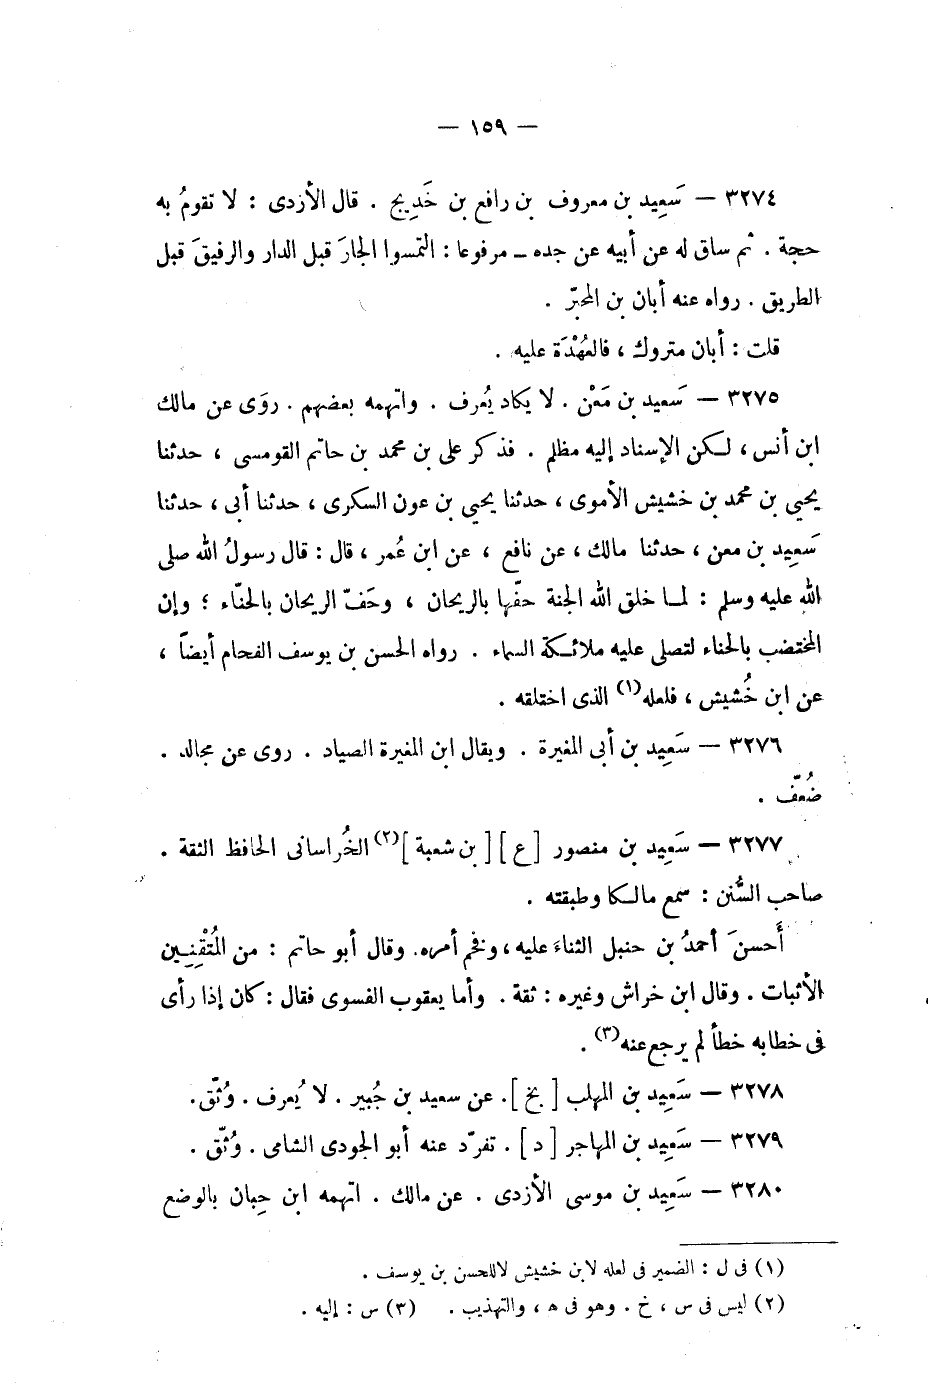 — ١٥٩ —
٣٢٧٤ — سَعِيد بن معروف بن رافع بن خَدِيج . قال الأزدى : لا تقومُ به
حجة . ثم ساق له عن أبيه عن جده – مرفوعا : التمسوا الجارَ قبل الدار والرفيقَ قبل
الطريق . رواه عنه أبان بن المحبّر .
قلت : أبان متروك ، فالعُهْدَة عليه .
٣٢٧٥ — سَعيد بن مَعْن . لا يكاد يُعرف . واتهمه بعضهم . روَى عن مالك
ابن أنس ، لـكن الإسناد إليه مظلم . فذكر على بن محمد بن حاتم القومسى ، حدثنا
يحيى بن محمد بن خشيش الأموى ، حدثنا يحيى بن عون السكرى ، حدثنا أبى ، حدثنا
سَعِيد بن معن ، حدثنا مالك ، عن نافع ، عن ابن عُمر ، قال : قال رسولُ الله صلى
الله عليه وسلم : لمـا خلق الله الجنة حفّها بالريحان ، وحَفّ الريحان بالحنّاء ؛ وإن
المختضب بالحناء لتصلى عليه ملائـكة السماء . رواه الحسن بن يوسف الفحام أيضاً ،
عن ابن خُشيش ، فلعله(١) الذى اختلقه .
٣٢٧٦ — سَعِيد بن أبى المغيرة . ويقال ابن المغيرة الصياد . روى عن مجالد .
ضُعّف .
٣٢٧٧ — سَعِيد بن منصور [ ع ] [ بن شعبة ](٢) الخُراسانى الحافظ الثقة .
صاحب السُّنن : سمع مالـكا وطبقته .
أَحسنَ أحمدُ بن حنبل الثناءَ عليه ، وفخم أمره. وقال أبو حاتم : من المُتْقِنِين
الأثبات . وقال ابن خراش وغيره : ثقة . وأما يعقوب الفسوى فقال : كان إذا رأى
فى خطابه خطأ لم يرجع عنه(٣) .
٣٢٧٨ — سَعِيد بن المهلب [ بخ ]. عن سعيد بن جُبير . لا يُعرف . وُثّق.
٣٢٧٩ — سَعِيد بن المهاجر [ د ] . تفرّد عنه أبو الجودى الشامى . وُثّق .
٣٢٨٠ — سَعِيد بن موسى الأزدى . عن مالك . اتهمه ابن حِبان بالوضع
(١) فى ل : الضمير فى لعله لابن خشيش لا للحسن بن يوسف .
(٢) ليس فى س ، خ . وهو فى ه ، والتهذيب . (٣) س : إليه .